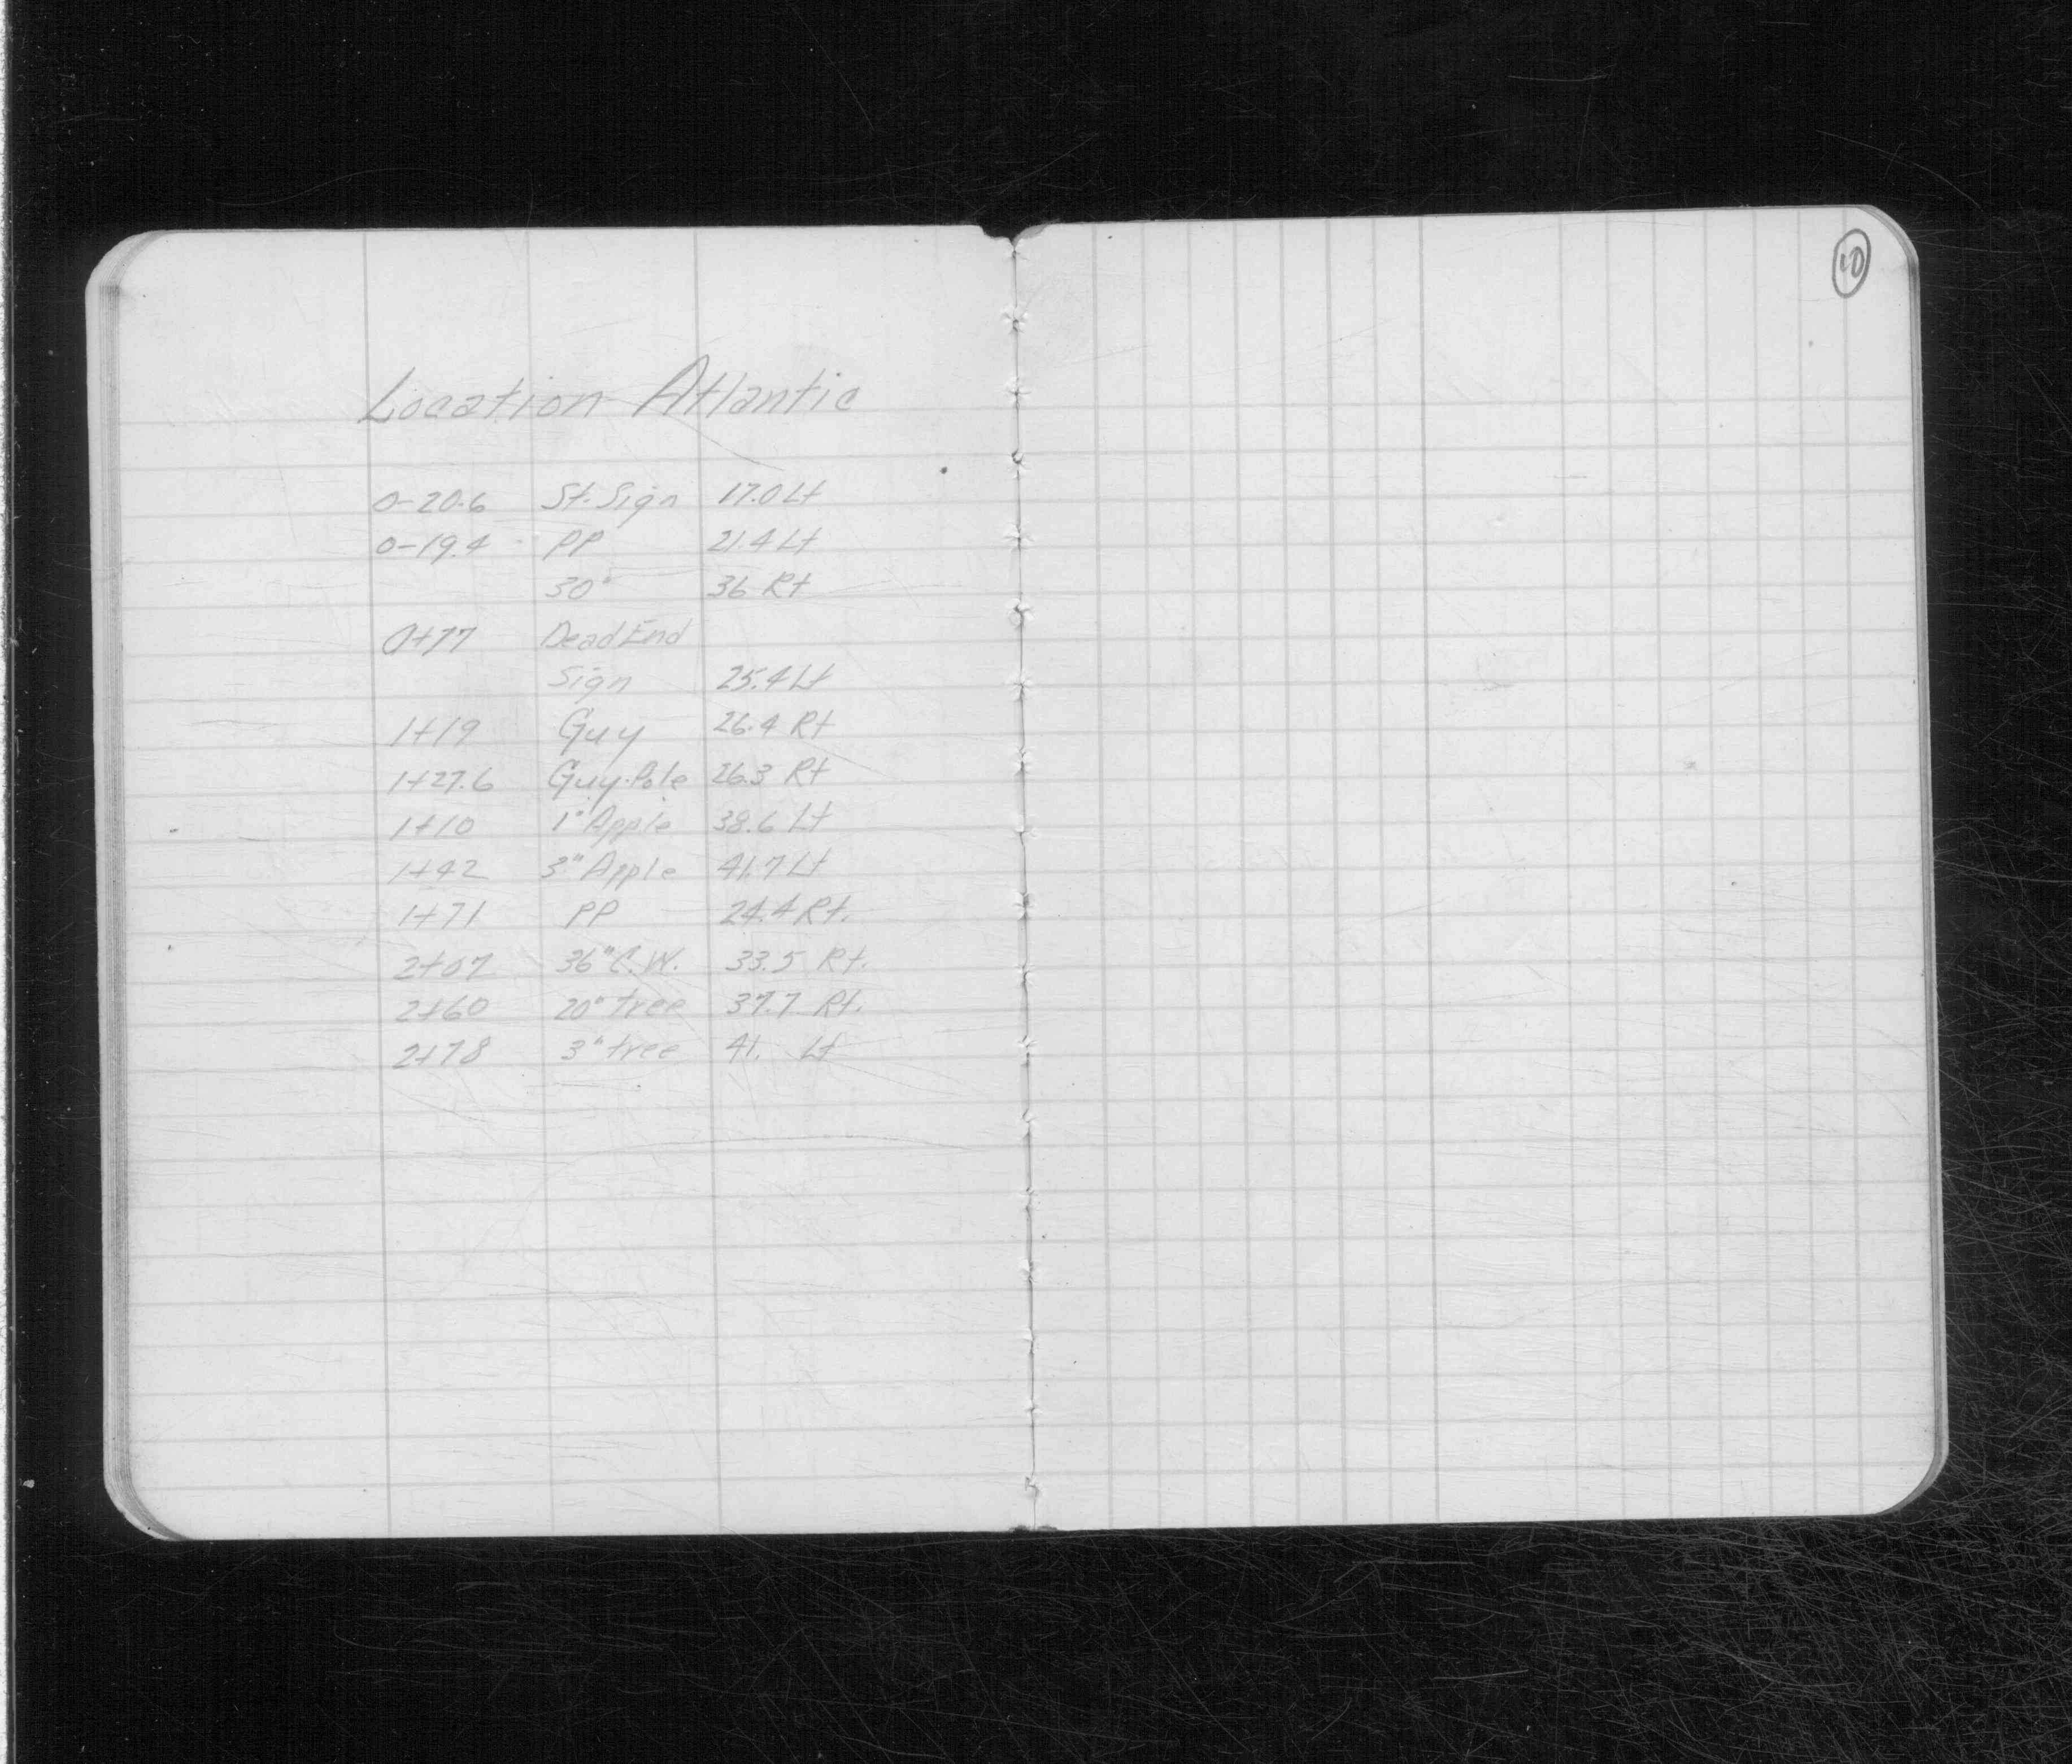 10
Location Atlantic
0-20.6 St. Sign 17.0 Lt
0-19.4 PP 21.4 Lt
30" 36 Rt
0+77 Dead End
Sign 25.4 Lt
1+19 Guy 26.4 Rt
1+27.6 Guy-Pole 26.3 Rt
1+10 1" Apple 38.6 Lt
1+42 3" Apple 41.7 Lt
1+71 PP 24.4 Rt.
2+07 36" C.W. 33.5 Rt.
2+60 20" tree 37.7 Rt.
2+78 3" tree 41. Lt